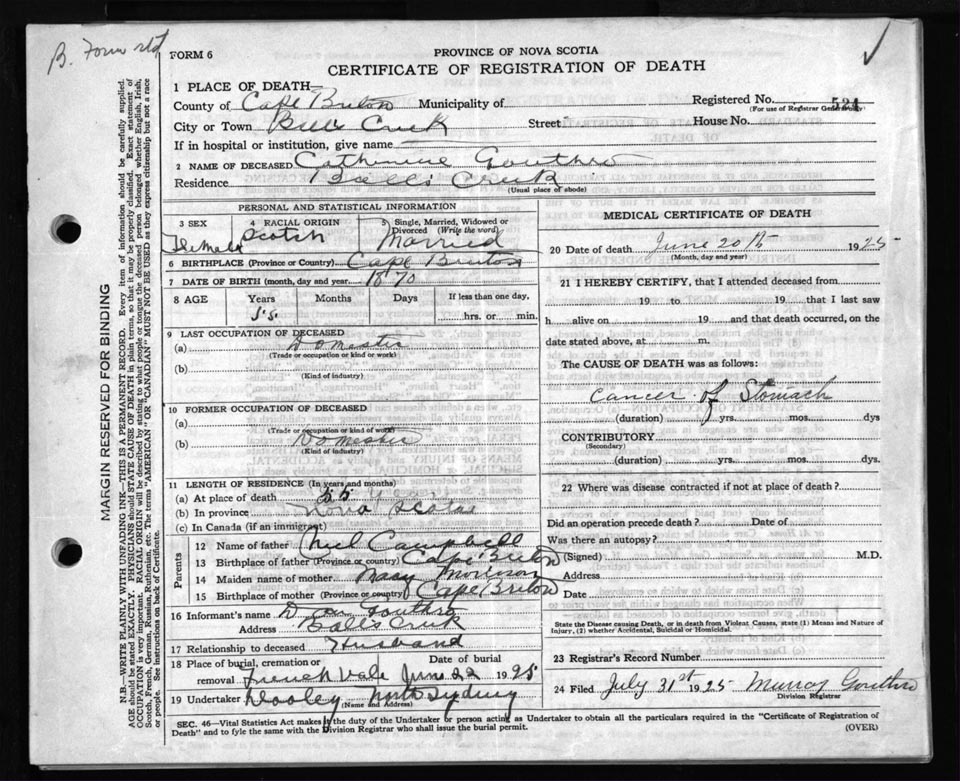 B. Forwrtd
FORM 6
PROVINCE OF NOVA SCOTIA
CERTIFICATE OF REGISTRATION OF DEATH
1 PLACE OF DEATH—
County of Cape Breton Municipality of
Registered No. 524
(For use of Registrar General only)
City or Town Creek Street House No.
If in hospital or institution, give name
2 NAME OF DECEASED Catherine Gouthro
Residence Balls Creek
(Usual place of abode)
PERSONAL AND STATISTICAL INFORMATION
3 SEX Female
4 RACIAL ORIGIN Scotch
5 Single, Married, Widowed or Divorced (Write the word) Married
6 BIRTHPLACE (Province or Country) Cape Breton
7 DATE OF BIRTH (month, day and year) 1870
8 AGE Years Months Days If less than one day,
55 hrs. or min.
9 LAST OCCUPATION OF DECEASED
(a) Domestic
(Trade or occupation or kind or work)
(b)
(Kind of industry)
10 FORMER OCCUPATION OF DECEASED
(a)
(Trade or occupation or kind of work)
(b) Domestic
(Kind of industry)
11 LENGTH OF RESIDENCE (In years and months)
(a) At place of death 55
(b) In province Nova Scotia
(c) In Canada (if an immigrant)
Parents
12 Name of father Neil Campbell
13 Birthplace of father (Province or country) Cape Breton
14 Maiden name of mother Morrison
15 Birthplace of mother (Province or country) Cape Breton
16 Informant's name Gouthro
Address Balls Creek
17 Relationship to deceased Husband
18 Place of burial, cremation or Date of burial
removal French Vale June 22 1925
19 Undertaker Dooley North Sydney
(Name and Address)
MEDICAL CERTIFICATE OF DEATH
20 Date of death June 20th 1925
(Month, day and year)
21 I HEREBY CERTIFY, that I attended deceased from
19 to 19 that I last saw
h alive on 19 and that death occurred, on the
date stated above, at m.
The CAUSE OF DEATH was as follows:
Cancer of Stomach
(duration) yrs. mos. dys
CONTRIBUTORY
(Secondary)
(duration) yrs. mos. dys.
22 Where was disease contracted if not at place of death?
Did an operation precede death? Date of
Was there an autopsy?
(Signed) M.D.
Address
Date
State the Disease causing Death, or in death from Violent Causes, state (1) Means and Nature of
Injury, (2) whether Accidental, Suicidal or Homicidal.
23 Registrar's Record Number
24 Filed July 31st 1925 Murray Gouthro
Division Registrar
SEC. 46—Vital Statistics Act makes it the duty of the Undertaker or person acting as Undertaker to obtain all the particulars required in the "Certificate of Registration of
Death" and to fyle the same with the Division Registrar who shall issue the burial permit. (OVER)
MARGIN RESERVED FOR BINDING
N.B.—WRITE PLAINLY WITH UNFADING INK—THIS IS A PERMANENT RECORD. Every item of information should be carefully supplied.
AGE should be stated EXACTLY. PHYSICIANS should STATE CAUSE OF DEATH in plain terms, so that it may be properly classified. Exact statement of
OCCUPATION is very important. RACIAL ORIGIN will be described by stating to what people or tongue the deceased person belonged whether English, Irish,
Scotch, French, German, Russian, Ruthenian, etc. The terms "AMERICAN" OR "CANADIAN" MUST NOT BE USED as they express citizenship but not a race
or people. See instructions on back of Certificate.